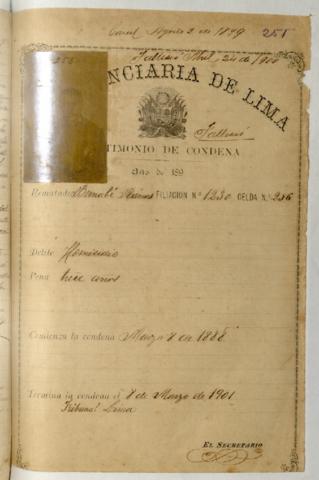 Agosto 2 de 1899 251
Falleció Abril, 24 de 1900
NCIARIA DE LIMA
Falleció
TIMONIO DE CONDENA
Año de 189
Rematado Bernabé FILIACION N.º 1230 CELDA N.º 256
Delito Homicidio
Pena trece años
Comienza la condena Marzo 8 de 1888
Termina la condena el 8 de Marzo de 1901
Tribunal Lima
EL SECRETARIO